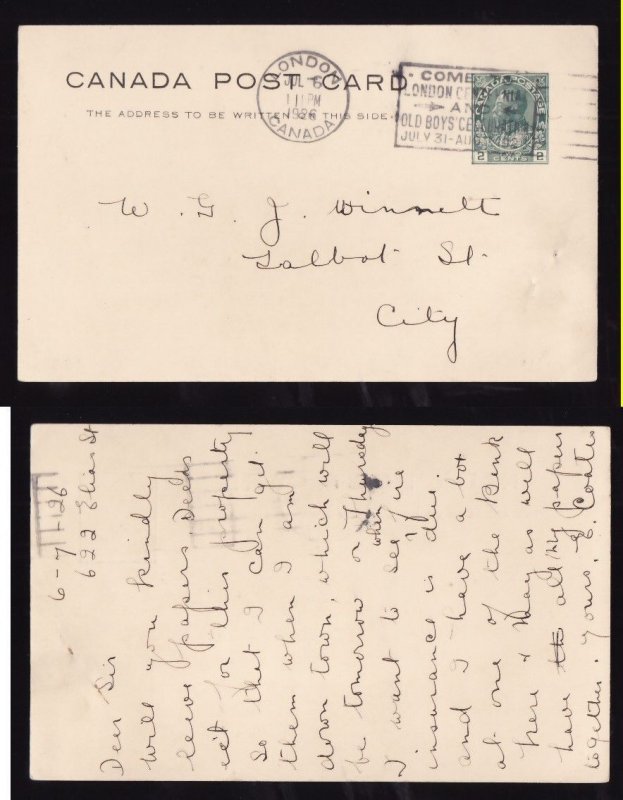 CANADA POST CARD
THE ADDRESS TO BE WRITTEN ON THIS SIDE
LONDON
JUL 6
11 PM
1926
CANADA
COME
LONDON
AND
OLD BOYS
JULY 31-AU
2 CENTS 2
W. G. J. Winnett
Talbot St.
City
6-7-26
622 Elias St
Dear Sir
Will you kindly
leave papers Deeds
ect for this property
so that I can get
them when I am
down town, which will
be tomorrow or Thursday
I want to see when fire
insurance is due
and I have a box
at one of the Bank
here & may as well
have all my papers
together. Yours, E. Coates